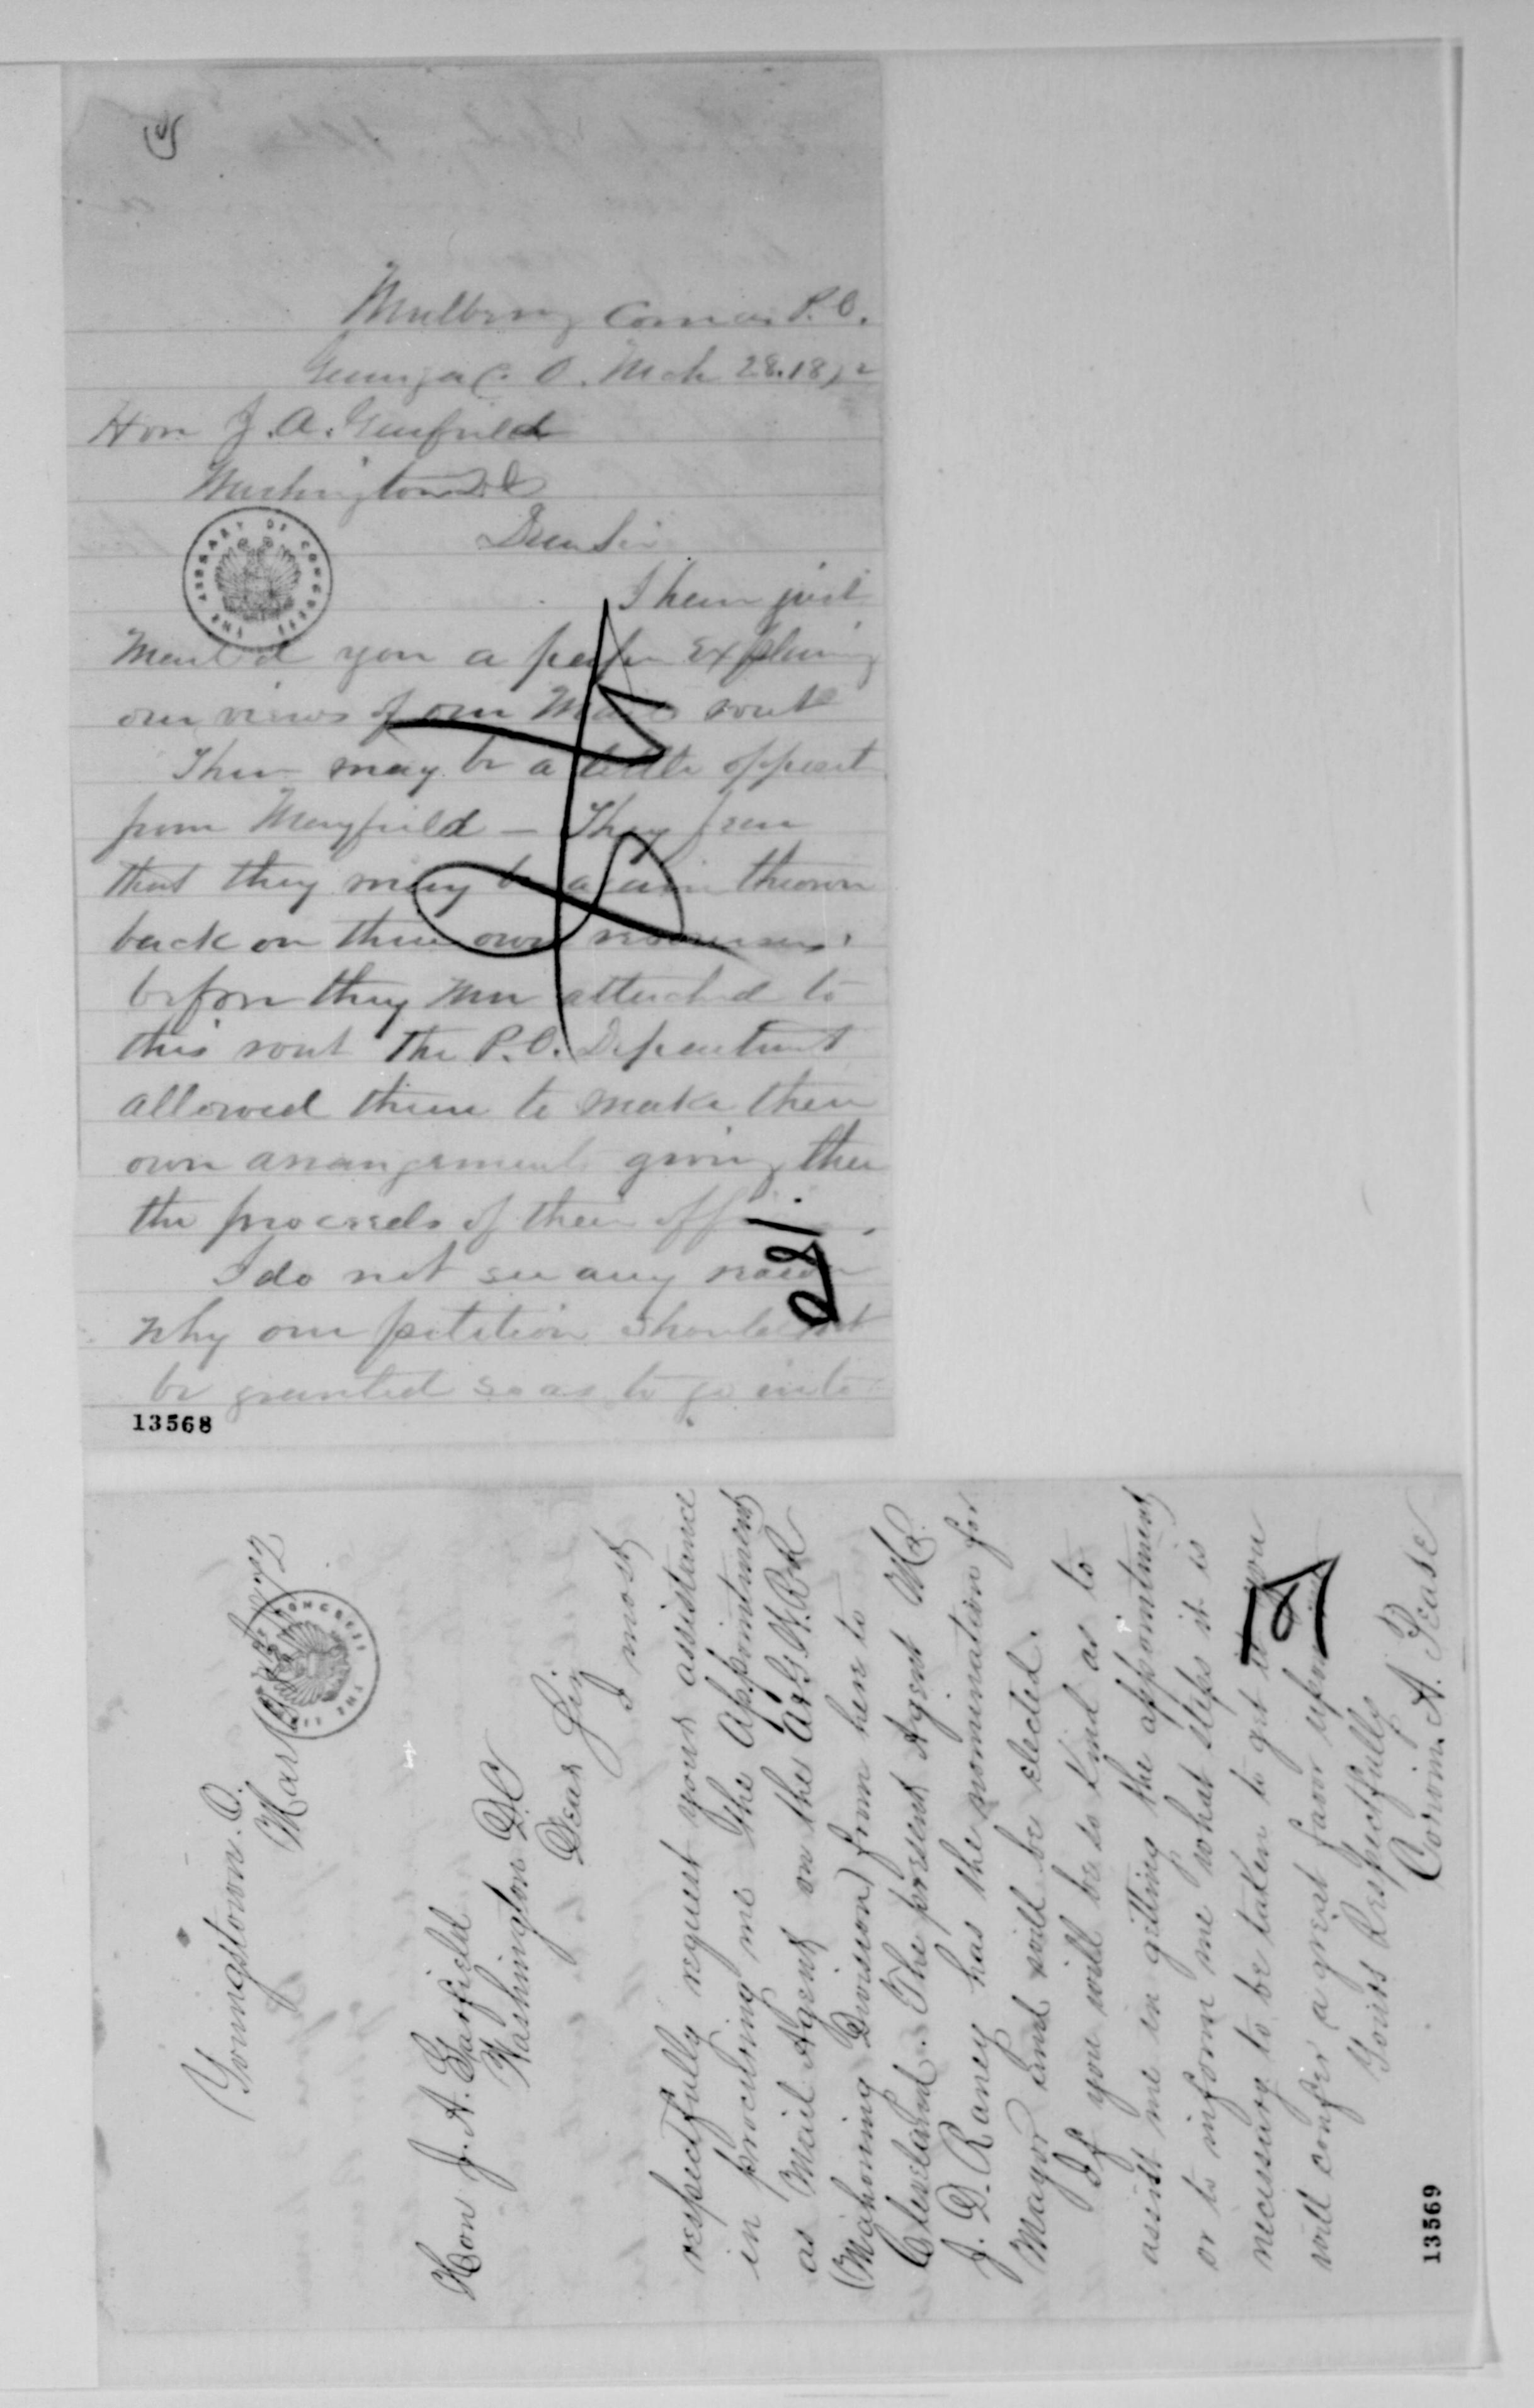 Mulberry Corners P.O.
Geauga Co. O. Mch 28. 1872
Hon J. A. Garfield
Washington D.C
Dear Sir
I have just
Mailed you a paper explaining
our views of our Mail rout
There may be a little opposit
from Mayfield — They fear
that they may be again thrown
back on their own resources.
before they wer attached to
this rout the P.O. Department
allowed them to make their
own arrangements giving them
the proceeds of their office.
I do not see any reason
why our petition should not
be granted so as to go into
13568
THE LIBRARY OF CONGRESS
Youngstown. O.
Mar 1872
Hon J. A. Garfield
Washington D.C
Dear Sir
I most
respectfully request your assistance
in procuring me the Appointment
as Mail Agent on the A&G.W.R.R
(Mahoning Division) from here to
Cleveland. The present Agent Mr.
J. D. Raney has the nomination for
Mayor and will be elected.
If you will be so kind as to
assist me in getting the appointment
or to inform me what steps it is
necessary to be taken to get it you
will confer a great favor upon
Yours Respectfully
Corwin. A. Pease
13569